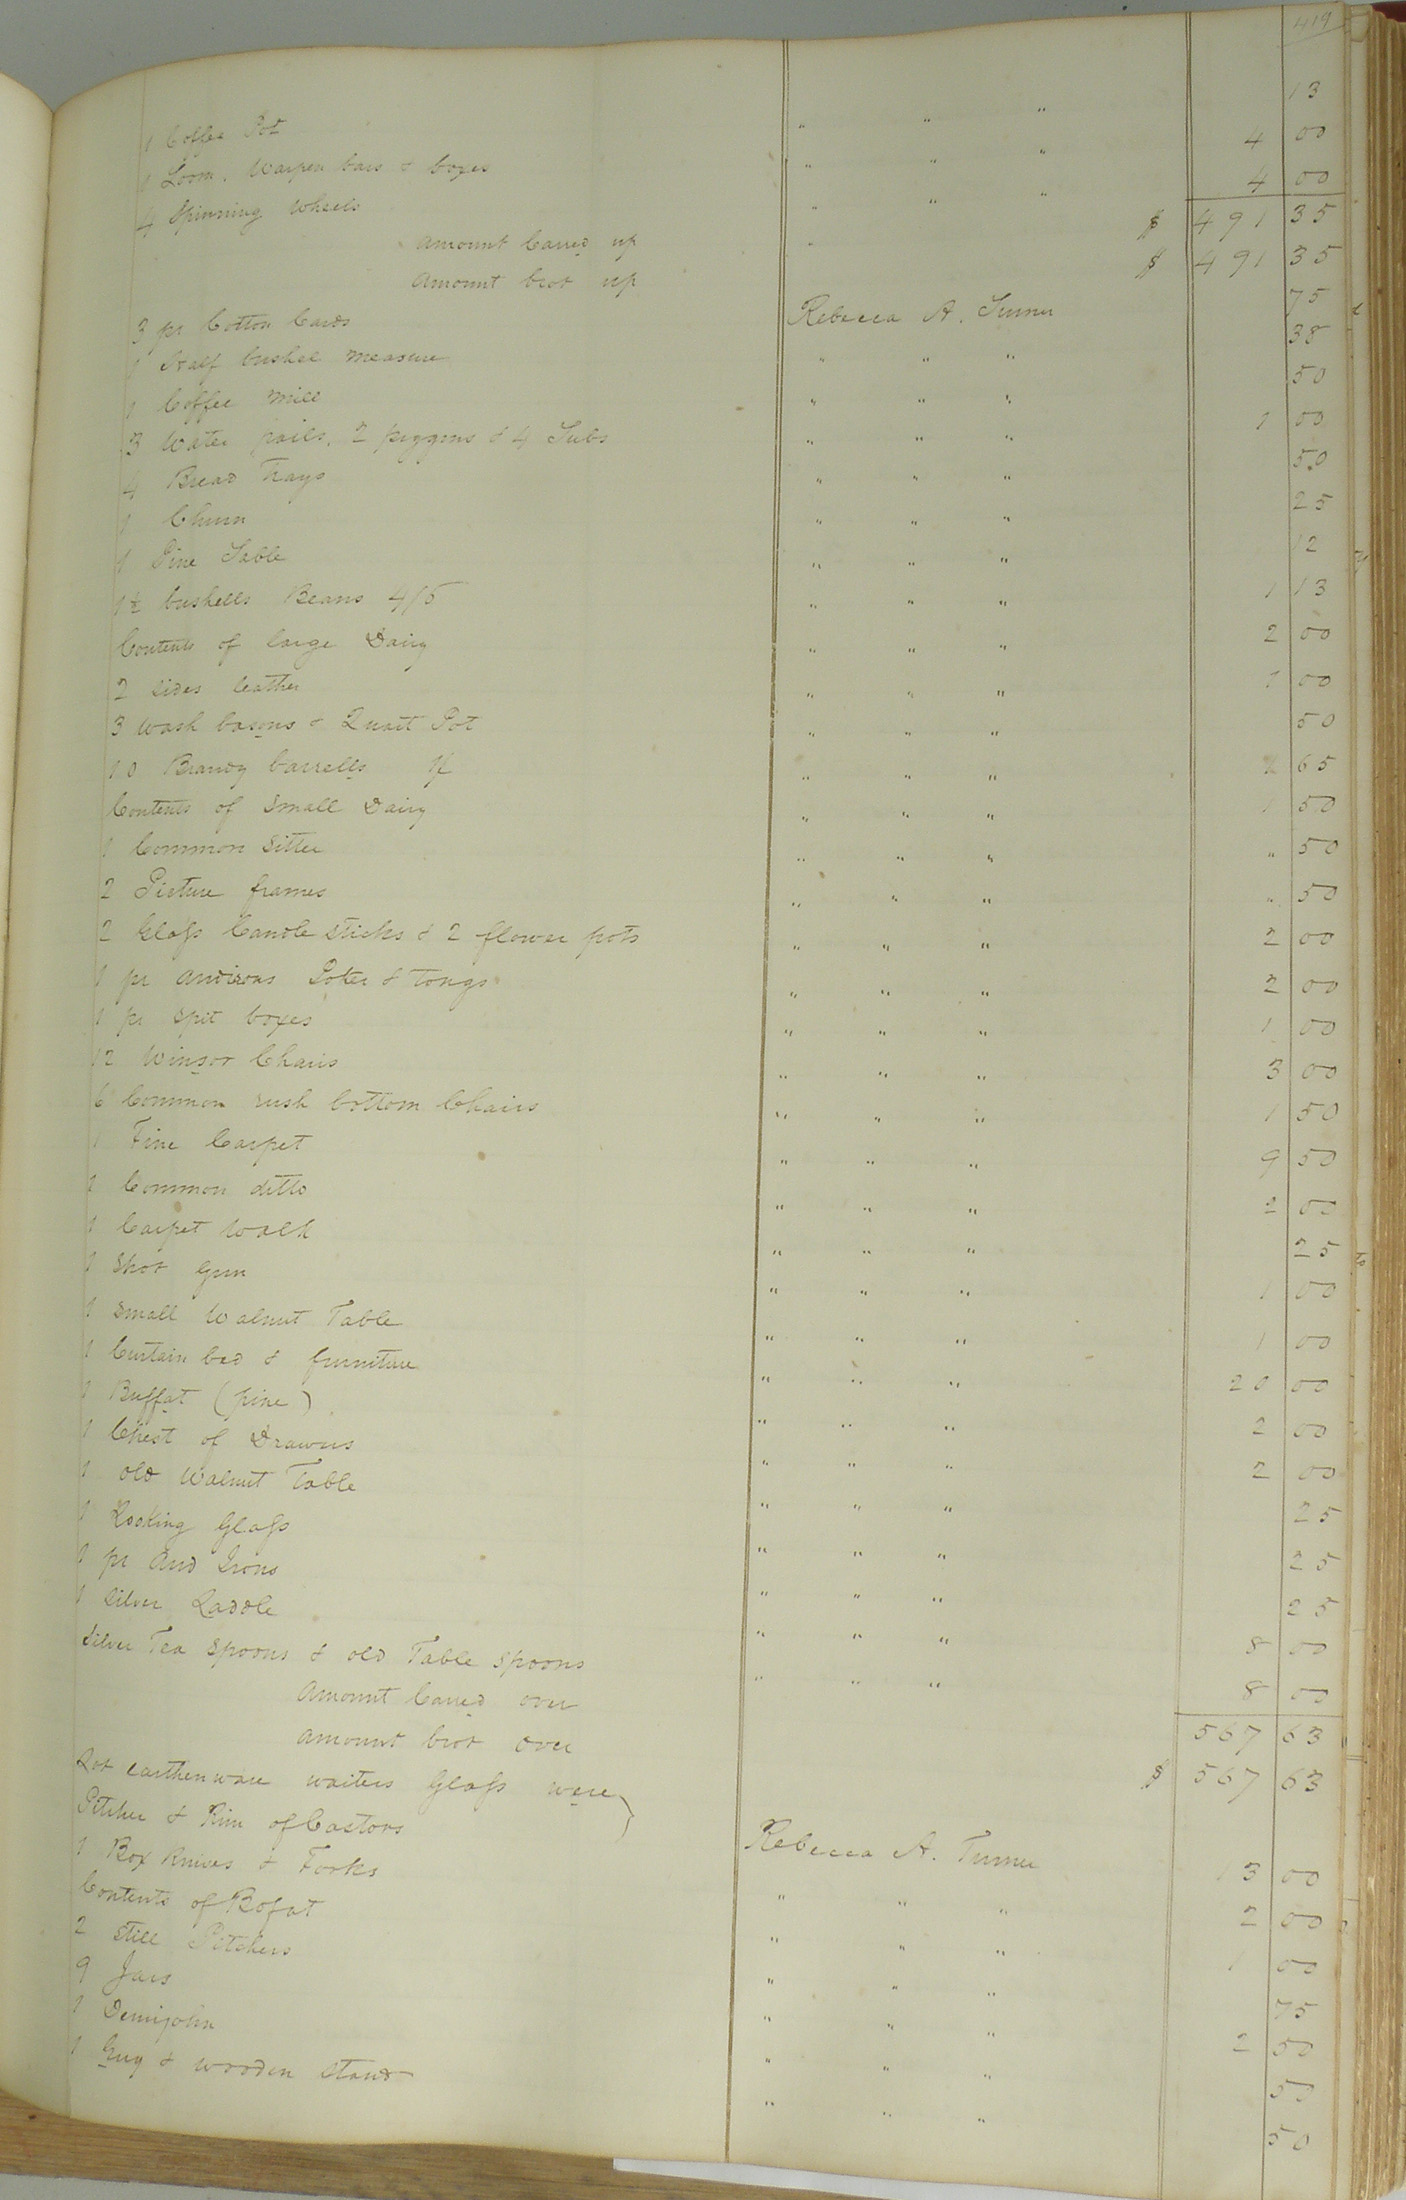 419
1 Coffee Pot " " " 13
1 Loom, Warpen bars & boxes " " " 4 00
4 Spinning Wheels " " " 4 00
Amount Carred up " $ 491 35
Amount brot up $ 491 35
3 pr Cotton Cards Rebecca A. Turner 75
1 Half bushel measure " " " 38
1 Coffee Mill " " " 50
3 Water pails, 2 piggons & 4 Tubs " " " 1 00
4 Bread Trays " " " 50
1 Churn " " " 25
1 Pine Table " " " 12
1½ bushells Beans 4/6 " " " 1 13
Contents of large Dairy " " " 2 00
2 sides leather " " " 1 00
3 Wash basons & Quart Pot " " " 50
10 Brandy barrells " " " 65
Contents of Small Dairy " " " 1 50
1 Common Sitter " " " " 50
2 Picture frames " " " " 50
2 Glass Candle sticks & 2 flower pots " " " 2 00
1 pr andirons Poker & tongs " " " 2 00
1 pr spit boxes " " " 1 00
12 Winsor Chairs " " " 3 00
6 Common rush bottom Chairs " " " 1 50
1 Fine Carpet " " " 9 50
1 Common ditto " " " 2 00
1 Carpet Walk " " " 25
1 Shot Gun " " " 1 00
1 small Walnut Table " " " 1 00
1 Curtain bed & furniture " " " 20 00
1 Buffat (pine) " " " 2 00
1 Chest of Drawers " " " 2 00
1 old Walnut Table " " " 25
1 Looking Glass " " " 25
1 pr And Irons " " " 25
1 Silver Laddle " " " 8 00
Silver Tea Spoons & old Table Spoons " " " 8 00
Amount Carred over 567 63
Amount brot over $ 567 63
Lot earthenware waiters Glass were
Pitcher & Rim of Castors Rebecca A. Turner 13 00
1 Box Knives & Forks " " " 2 00
Contents of Bofat " " " 1 00
2 still Pitchers " " " 75
9 Jars " " " 2 50
1 Demijohn " " " 50
1 Guy & wooden stand " " " 50